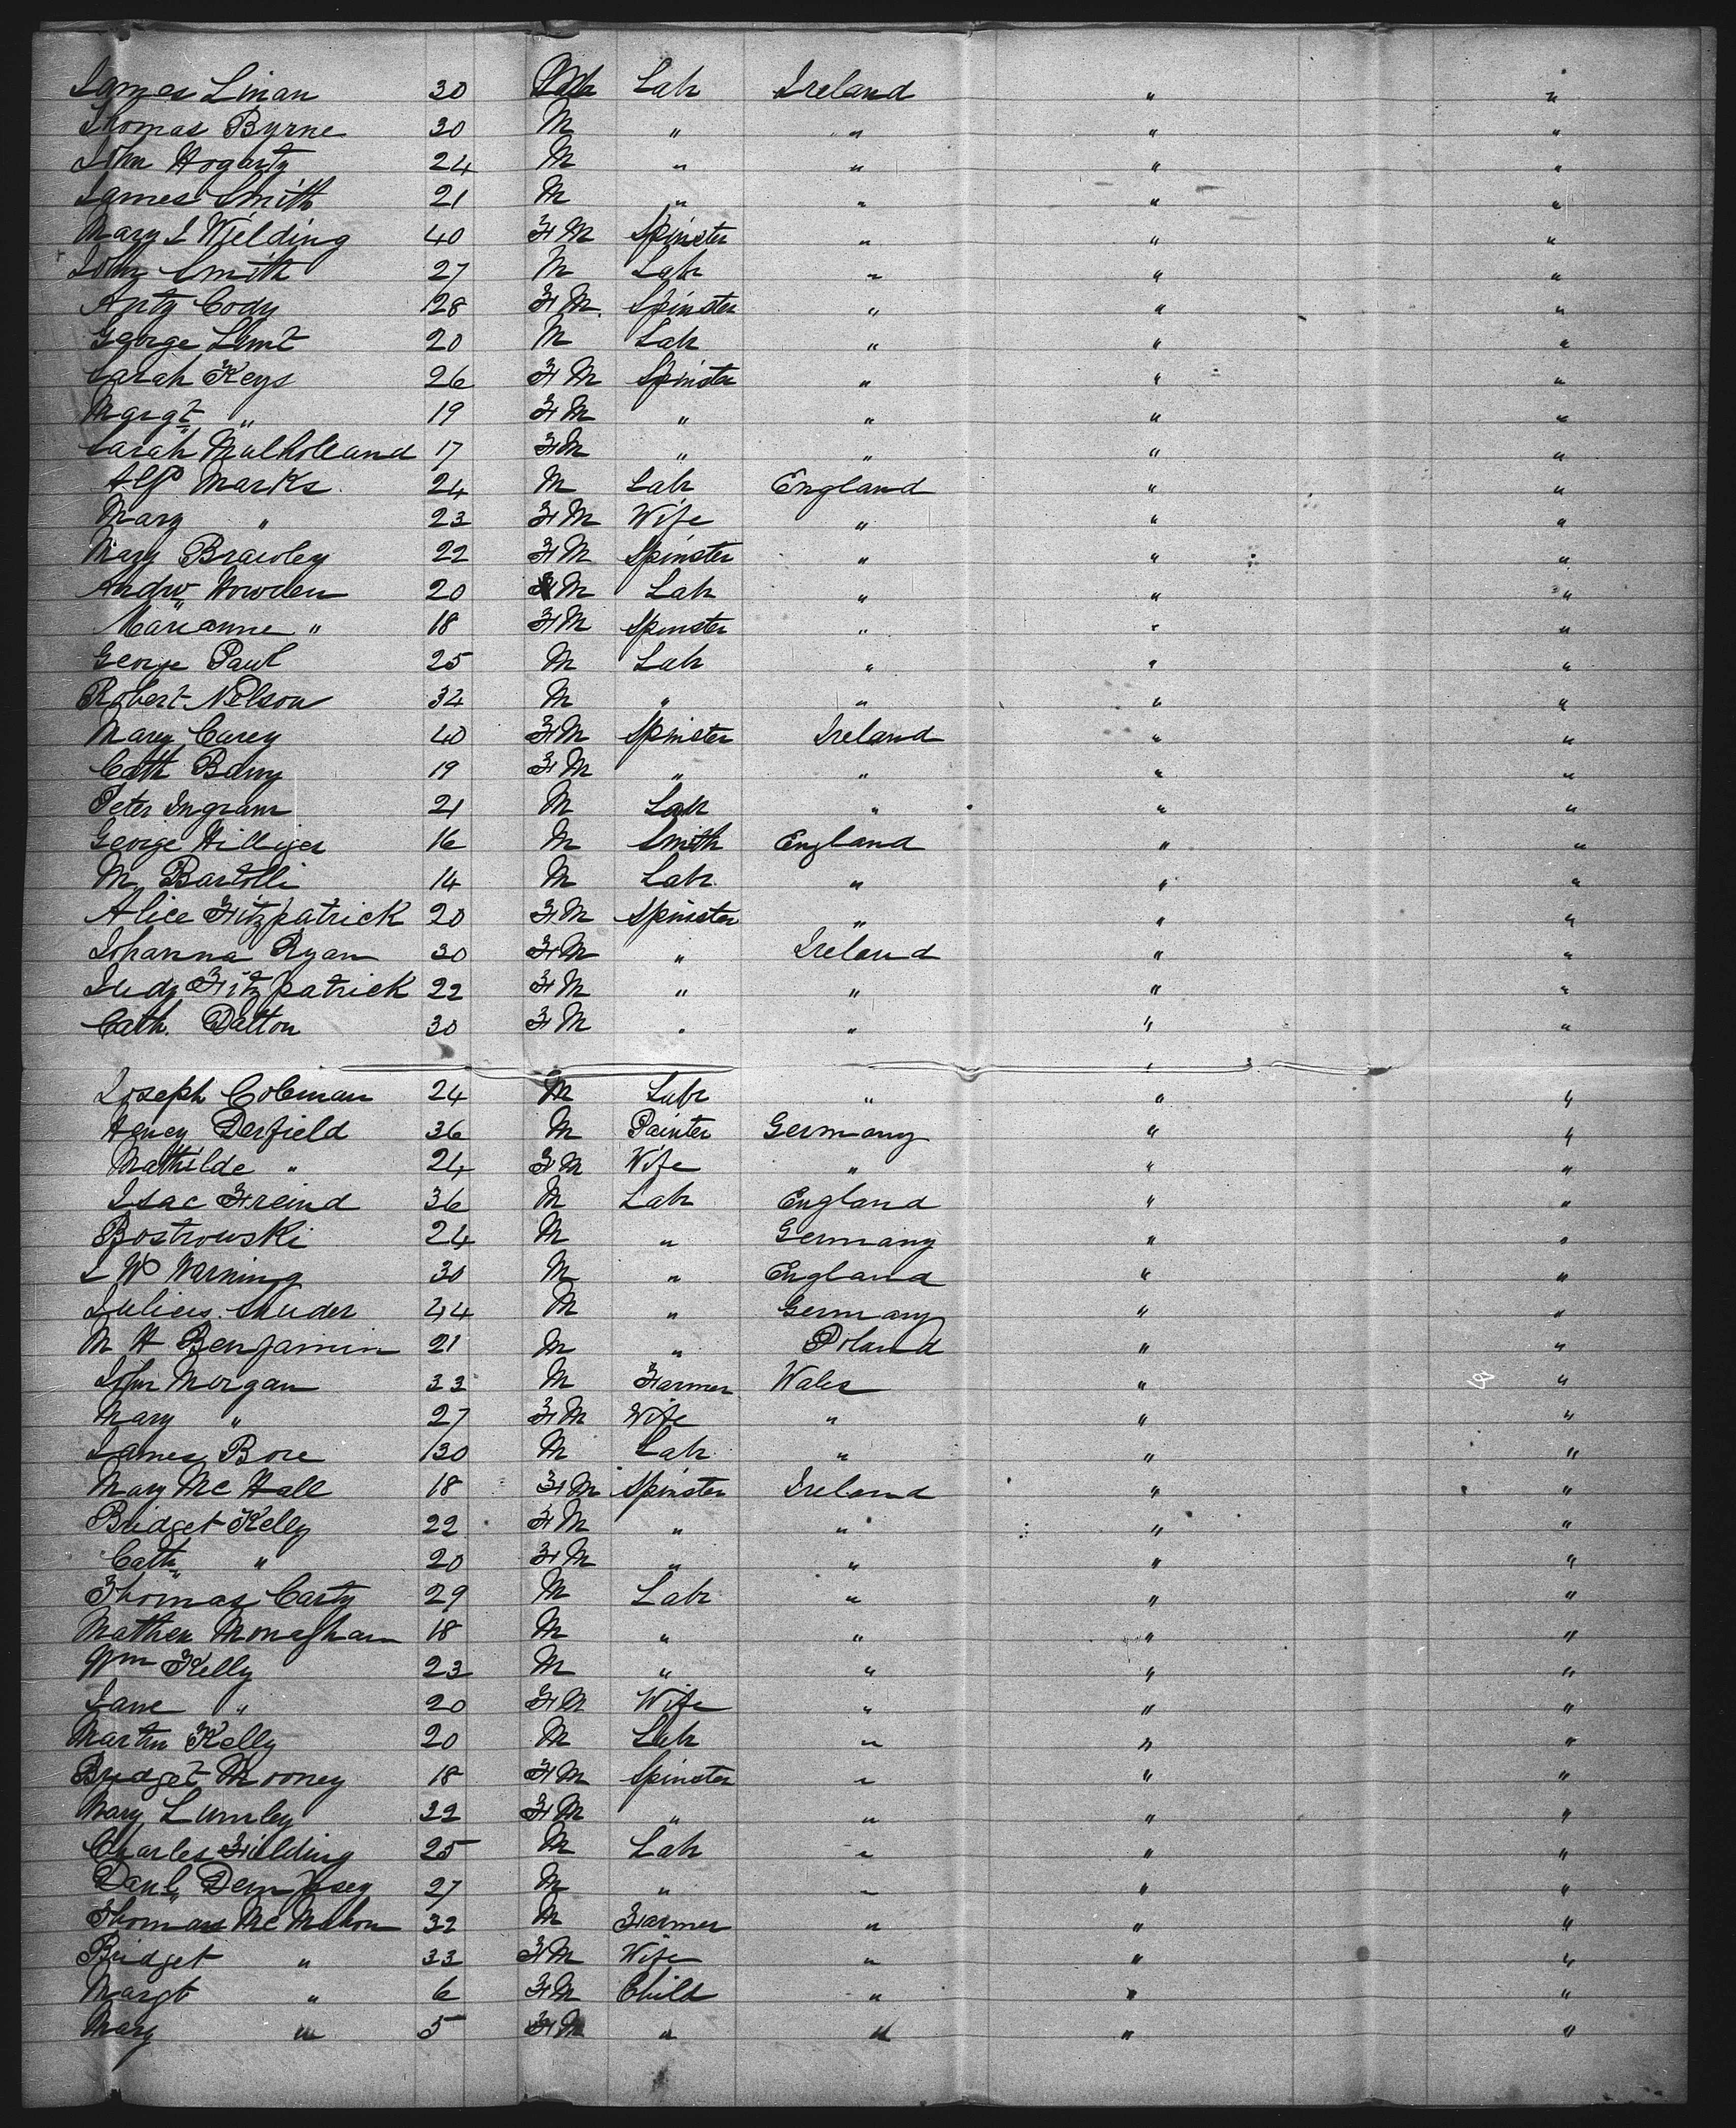 James Linan 30 Labr Ireland " "
Thomas Byrne 30 M " " " "
John Hogarty 24 M " " " "
James Smith 21 M " " " "
Mary J Wielding 40 FM Spinster " " "
John Smith 27 M Labr " " "
Anty Cody 28 FM Spinster " " "
George Lent 20 M Labr " " "
Sarah Keys 26 FM Spinster " " "
Margt " 19 FM " " " "
Sarah Mulholland 17 FM " " " "
Marks 24 M Labr England " "
Mary " 23 FM Wife " " "
Mary Brawley 22 FM Spinster " " "
Andw Howden 20 M Labr " " "
Marianne " 18 FM Spinster " " "
George Paul 25 M Labr " " "
Robert Nelson 34 M " " " "
Mary Carey 40 FM Spinster Ireland " "
Cath 19 FM " " " "
Peter Ingram 21 M Labr " " "
George Hilliger 16 M Smith England " "
M Bartolli 14 M Labr " " "
Alice Fitzpatrick 20 FM Spinster " " "
Johanna Ryan 30 FM " Ireland " "
Judy Fitzpatrick 22 FM " " " "
Cath. Dalton 30 FM " " " "
"
Joseph Coleman 24 M Labr " " "
Henry Derfield 36 M Painter Germany " "
Mathilde " 24 FM Wife " " "
Isac Freind 36 M Labr England " "
Bostrowski 24 M " Germany " "
J W Warning 30 M " England " "
Julius Sluder 44 M " Germany " "
M H Benjamin 21 M " Poland " "
John Morgan 33 M Farmer Wales " "
Mary " 27 FM Wife " " "
James Bore 30 M Labr " " "
Mary Mc Hall 18 FM Spinster Ireland " "
Bridget Kelly 22 FM " " " "
Cath " 20 FM " " " "
Thomas Carty 29 M Labr " " "
Mathew Monaghan 18 M " " " "
Wm Kelly 23 M " " " "
Jane " 20 FM Wife " " "
Martin Kelly 20 M Labr " " "
Bridget Mooney 18 FM Spinster " " "
Mary Lumley 22 FM " " " "
Charles Fielding 25 M Labr " " "
Danl Dempsey 27 M " " " "
Thomas Mc Mahon 32 M Farmer " " "
Bridget " 33 FM Wife " " "
Margt " 6 FM Child " " "
Mary " 5 FM " " " "